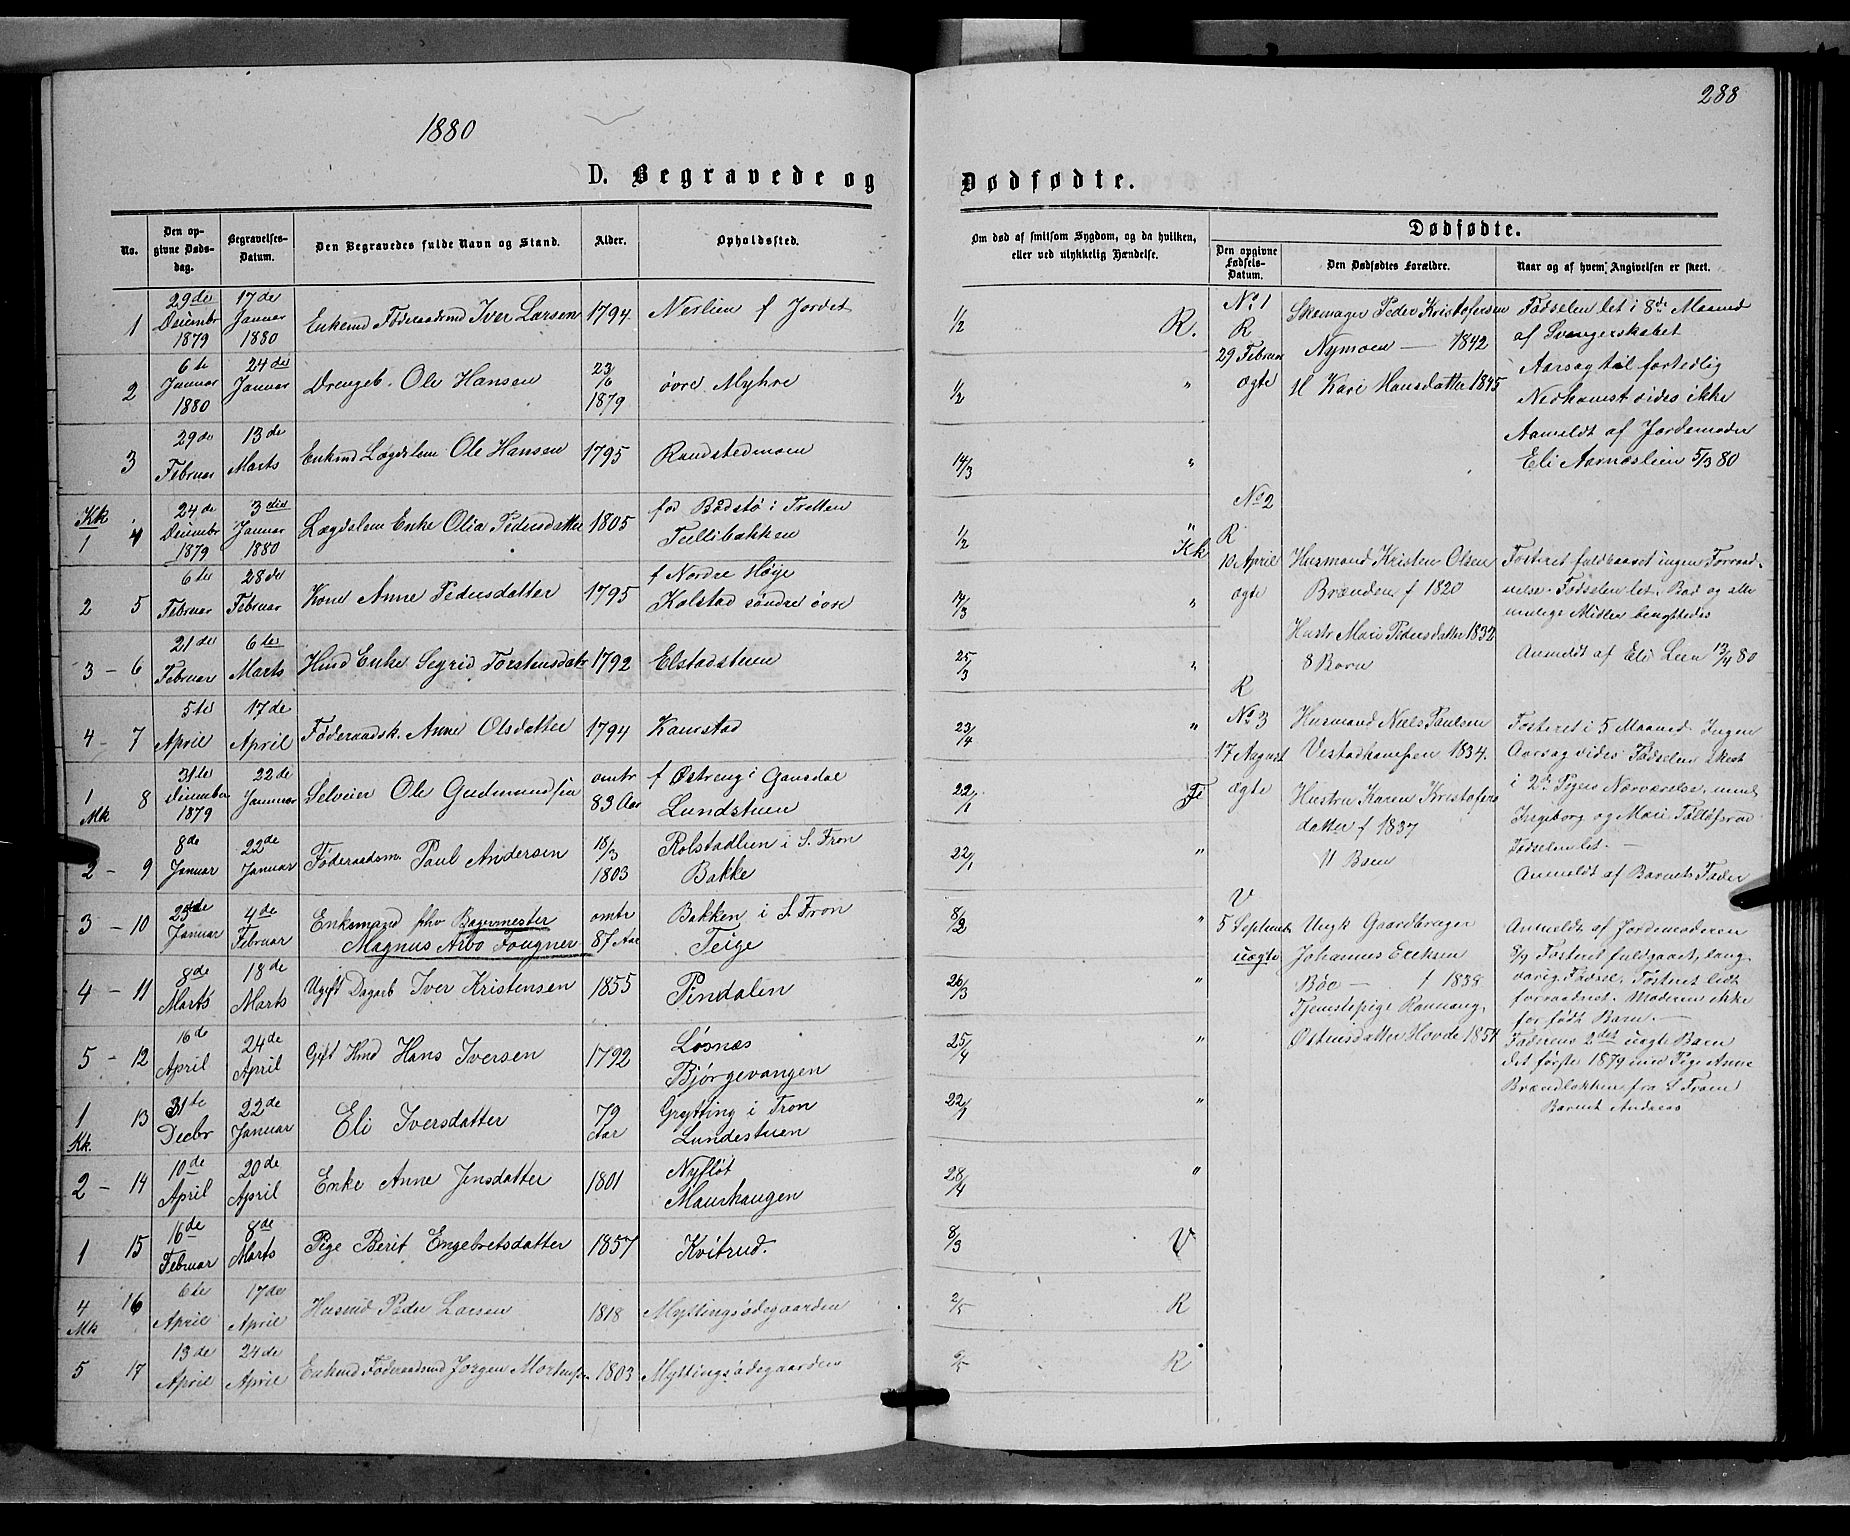 288
1880
D. Begravede og
Dødfødte.
No.
Den op-
givne Døds-
dag.
Begravelses-
Datum.
Den Begravedes fulde Navn og Stand.
Alder.
Opholdssted.
Om død af smitsom Sygdom, og da hvilken,
eller ved ulykkelig Hændelse.
Dødfødte.
Den opgivne
Fødsels-
Datum.
Den Dødfødtes Forældre.
Naar og af hvem Angivelsen er skeet.
1 29de Decembr 1879 17de Januar 1880 Enkemd Føderaadsmd Iver Larsen 1794 Nerlien f Jordet 1/2 R.
2 6te Januar 1880 24de Januar Drengeb. Ole Hansen 23/6 1879 øvre Myhre 1/2 "
3 29de Februar 13de Marts Enkmd Lægdslem Ole Hansen 1795 Randstedmoen 14/3 "
Kk 1 4 24de Decembr 1879 3die Januar 1880 Lægdslem Enke Olia Pedersdatter 1805 fød Bødstø i Tretten Tullibakken 1/2 " Kk
2 5 6te Februar 28de Februar Kone Anne Pedersdatter 1795 f Nordre Høye Kolstad søndre øvre 17/3 "
3 - 6 21de Februar 6te Marts Hmd Enke Segrid Torstensdatr 1792 Elstadstuen 25/3 "
4 - 7 5te April 17de April Føderaadsk. Anne Olsdatter 1794 Kamstad 23/4 "
1 Mk 8 31te Decembr 1879 22de Januar Selveier Ole Gudmundsen omtr 83 Aar f Østreng i Gausdal Lundstuen 22/1 Fe
2 - 9 8de Januar 22de Januar Føderaadsm. Paul Andersen 18/3 1803 Rolstadlien i S. Fron Bakke 22/1 "
3 - 10 25de Januar 4de Februar Enkemand fhv Bagermester Magnus Arbo Fougner omtr 87 Aar Bakken i S Fron Teige 8/2 "
4 - 11 8de Marts 18de Marts Ugift Dagarb Iver Kristensen 1855 Pindalen 26/3 "
5 - 12 16de April 24de April Gift Hmd Hans Iversen 1792 Løsnæs Bjørgevangen 25/4 "
1 Kk. 13 31te Decbr 22de Januar Eli Iversdatter 79 Aar Grytting i Fron Lundestuen 22/1 "
2 - 14 10de April 20de April Enke Anne Jensdatter 1801 Nyfløt Maurhaugen 28/4 "
1 15 16de Februar 8de Marts Pige Berit Engebretsdatter 1857 Kvitrud. 8/3 V
4 Mk 16 6te April 17de April Husmd Peder Larsen 1818 Myttingsødegaarden 2/5 R
5 17 13de April 24de April Enkmd Føderaadsmd Jørgen Mortensen 1803 Myttingsødegaarden R
No 1
R
29 Februar
ægte
Skomager Peder Kristofersen
Nymoen — 1842
H Kari Hansdatter 1845
Fødselen let i 8de Maaned
af Svangerskabet
Aarsag til fortidlig
Nedkomst vides ikke
Anmeldt af Jordemoder
Eli Aarnæslien 5/3 80
No 2
R
10 April
ægte
Husmand Kristen Olsen
Brænden f 1820
Hustr Mari Pedersdatter 1832
8 Børn
Fosteret fuldbaaret ingen Forraad-
nelse. Fødselen let. Bad og alle
mulige Midler benyttedes
Anmeldt af Eli Lien 13/4 80
R
No 3
17 August
ægte
Husmand Niels Paulsen
Vestadkampen 1834.
Hustru Karen Kristofers
datter f 1837
11 Børn
Fosteret i 5 Maaned. Ingen
Aarsag vides. Fødselen skeet
i 2de Pigers Nærværelse, nemlig
Ingeborg og Mari
Fødselen let. —
Anmeldt af Barnets Fader
V
5 September
uægte
Ungk Gaardbruger
Johannes Eriksen
Bøe — f 1838
Tjenestepige Rannaug
Østensdatter Hovde 1854
Anmeldt af Jordemoderen
8/9 Fosteret fuldgaaet, lang
varig Fødsel. Fosteret lidt
forraadnet. Moderen ikke
før født Barn. —
Faderens 2det uægte Barn
det første 1879 med Pige Anne
Brændbakken fra S Fron
Barnet Andreas